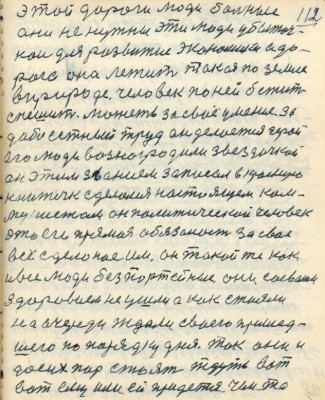 этой дороги люди больные 112
они не нужны эти люди убыточ-
ной для развитие экономики а до-
рога она лежит такая по земле
в природе. человек по ней бежит
спешит. может за своё умение за
доболетный труд он делается герой
его люди вознагродили звездочкой
он этим званием записан в красную
книжечк сделался настоящем ком-
мунистом он политический человек
это его прямая обязаность за свое
всё сделоное им. он такой же как
и все люди безпортейные они совоим
здоровием не ушли а как стояли
на очереди ждали своего пришед-
шего по порядку дня. так они и
до сих пор стоят ждуть вот
вот ему или ей придется чим то